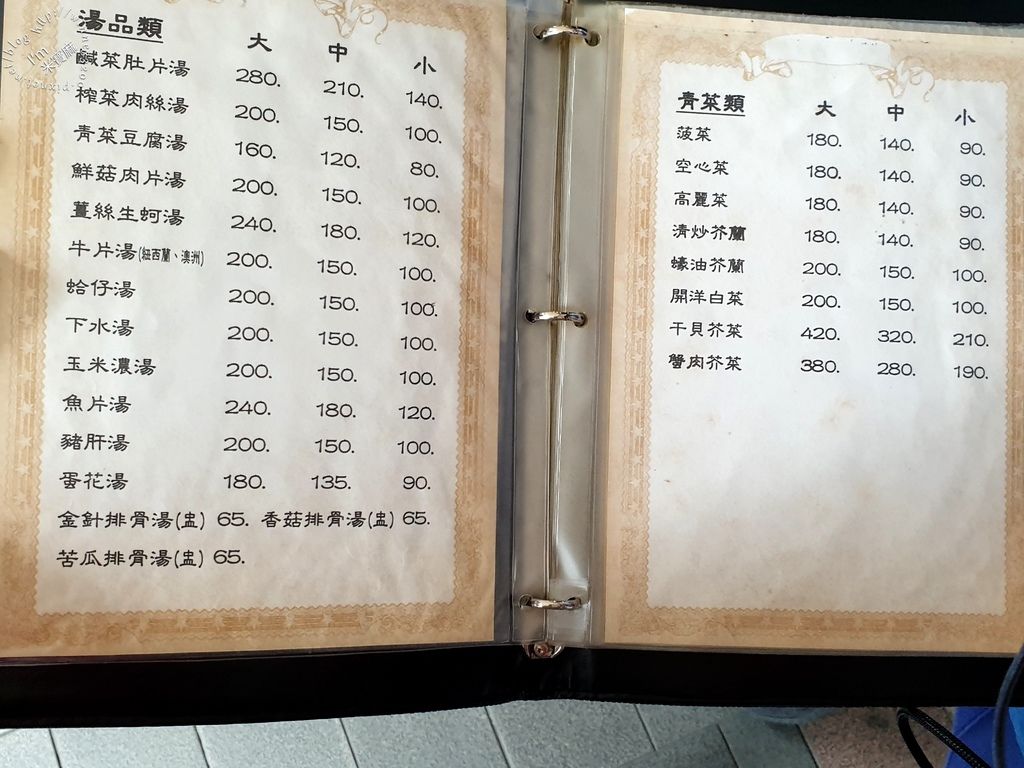 湯品類 大 中 小
鹹菜肚片湯 280. 210. 140.
榨菜肉絲湯 200. 150. 100.
青菜豆腐湯 160. 120. 80.
鮮菇肉片湯 200. 150. 100.
薑絲生蚵湯 240. 180. 120.
牛片湯(紐西蘭、澳洲) 200. 150. 100.
蛤仔湯 200. 150. 100.
下水湯 200. 150. 100.
玉米濃湯 200. 150. 100.
魚片湯 240. 180. 120.
豬肝湯 200. 150. 100.
蛋花湯 180. 135. 90.
金針排骨湯(盅) 65. 香菇排骨湯(盅) 65.
苦瓜排骨湯(盅) 65.
青菜類 大 中 小
菠菜 180. 140. 90.
空心菜 180. 140. 90.
高麗菜 180. 140. 90.
清炒芥蘭 180. 140. 90.
蠔油芥蘭 200. 150. 100.
開洋白菜 200. 150. 100.
干貝芥菜 420. 320. 210.
蟹肉芥菜 380. 280. 190.